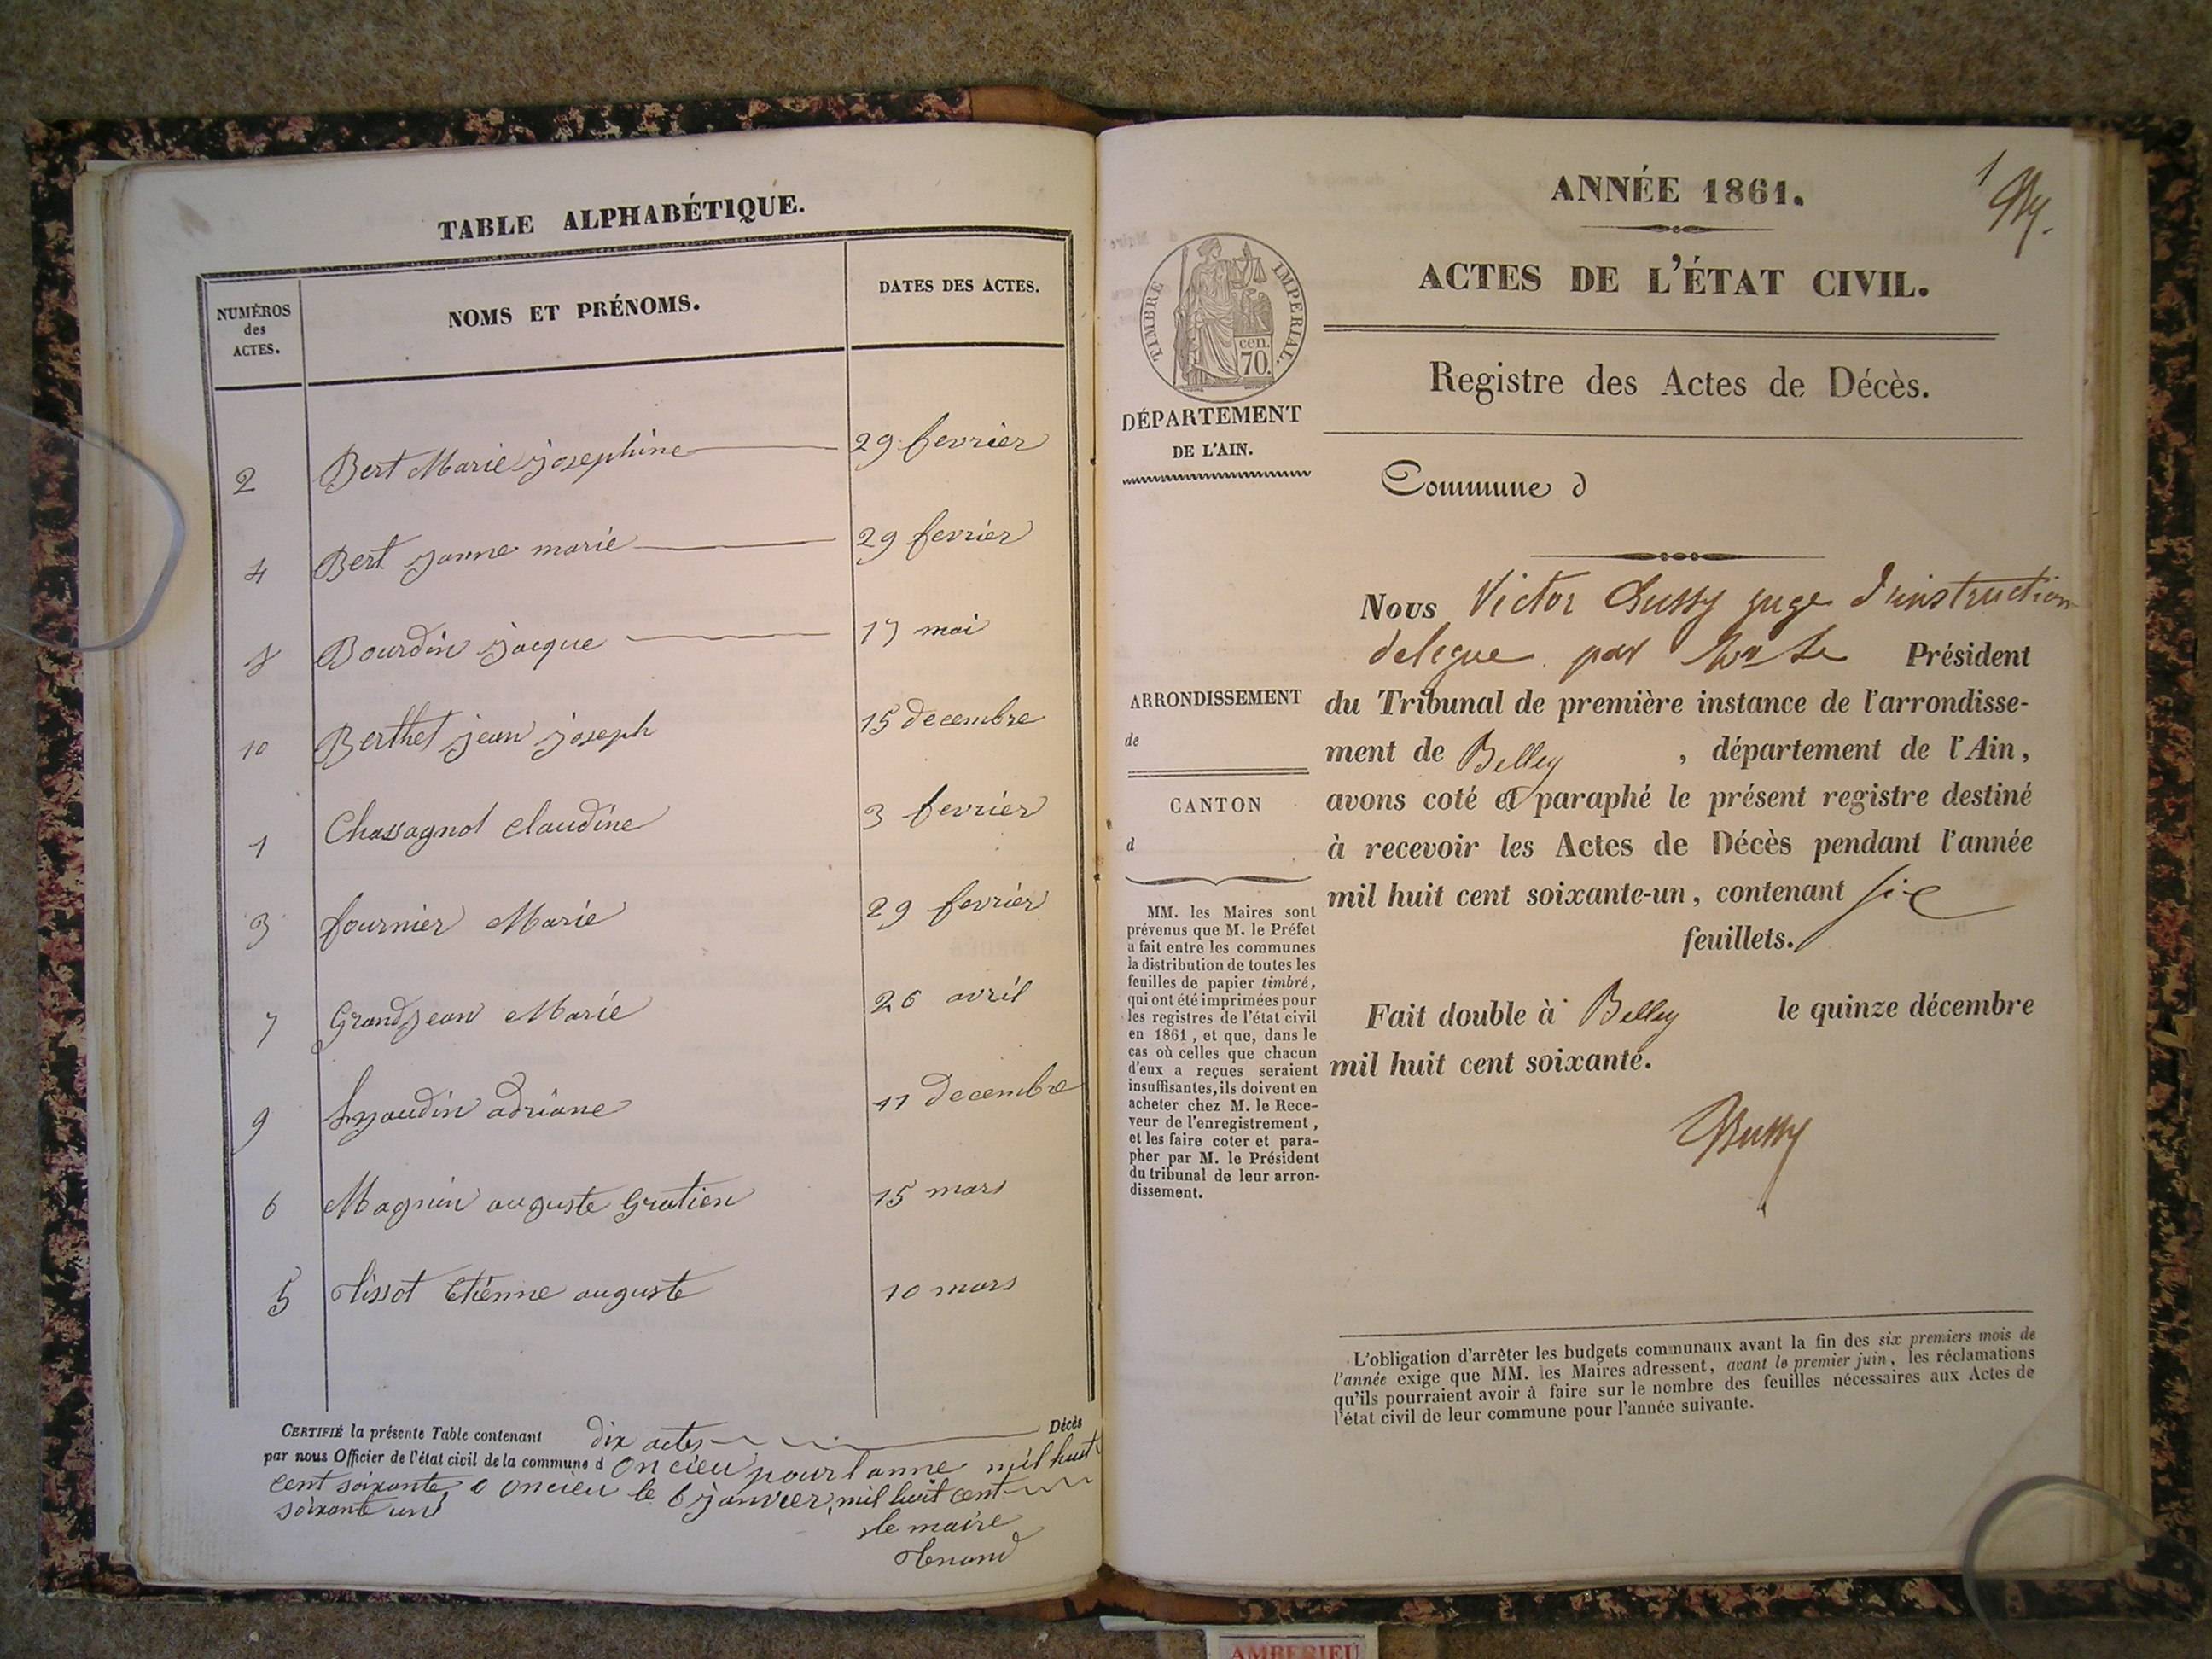 TABLE ALPHABÉTIQUE.
NUMÉROS
des
ACTES.
NOMS ET PRÉNOMS.
DATES DES ACTES.
2 Bert Marie josephine 29 fevrier
4 Bert janne marie 29 fevrier
8 Bourdin jacque 17 mai
10 Berthet jean joseph 15 decembre
1 Chassagnol claudine 3 fevrier
3 fournier Marie 29 fevrier
7 Grandjean Marie 26 avril
9 adriane 11 decembre
6 Magnin auguste Gratien 15 mars
5 tissot Etienne auguste 10 mars
CERTIFIÉ la présente Table contenant dix actes Décès
par nous Officier de l'état civil de la commune d oncieu pour lanne mil huit
cent soixante a oncieu le 6 janvier, mil huit cent
soixante un
le maire
tenand
1
ANNÉE 1861.
ACTES DE L'ÉTAT CIVIL.
Registre des Actes de Décès.
TIMBRE IMPERIAL.
cen.
70.
DÉPARTEMENT
DE L'AIN.
Commune d
Nous Victor juge d'instruction
delegue par Mr Le Président
du Tribunal de première instance de l'arrondisse-
ment de Belley , département de l'Ain,
avons coté et paraphé le présent registre destiné
à recevoir les Actes de Décès pendant l'année
mil huit cent soixante-un, contenant six
feuillets.
Fait double à Belley le quinze décembre
mil huit cent soixante.
Bussy
ARRONDISSEMENT
de
CANTON
d
MM. les Maires sont
prévenus que M. le Préfet
a fait entre les communes
la distribution de toutes les
feuilles de papier timbré,
qui ont été imprimées pour
les registres de l'état civil
en 1861, et que, dans le
cas où celles que chacun
d'eux a reçues seraient
insuffisantes, ils doivent en
acheter chez M. le Rece-
veur de l'enregistrement,
et les faire coter et para-
pher par M. le Président
du tribunal de leur arron-
dissement.
L'obligation d'arrêter les budgets communaux avant la fin des six premiers mois de
l'année exige que MM. les Maires adressent, avant le premier juin, les réclamations
qu'ils pourraient avoir à faire sur le nombre des feuilles nécessaires aux Actes de
l'état civil de leur commune pour l'année suivante.
AMBERIEU